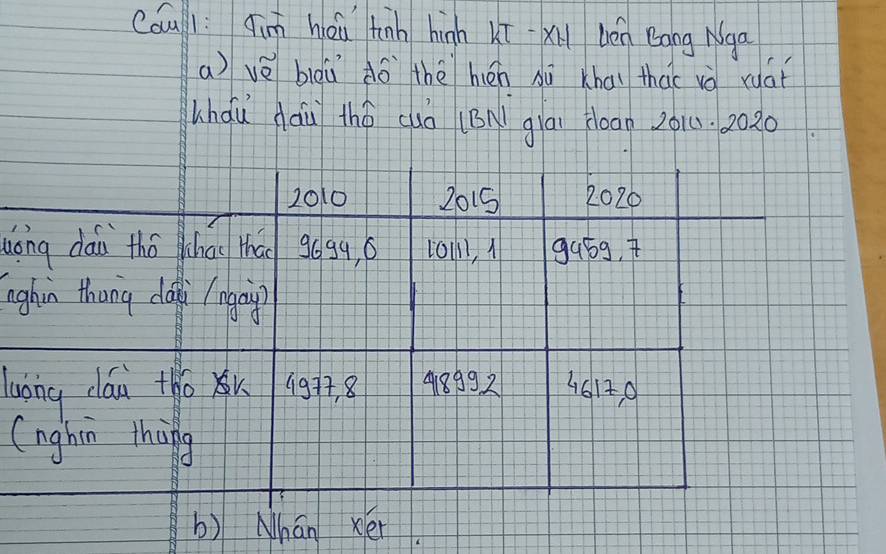 Câu 1: Tìm hiểu tình hình KT - XH Liên Bang Nga
a) vẽ biểu đồ thể hiện sự khai thác và xuất
khẩu dầu thô của LBN giai đoạn 2010 - 2020
2010 2015 2020
lượng dầu thô khai thác 9694,6 10111,1 9459,7
nghìn thùng dầu /ngày)
lượng dầu thô XK 4977,8 4899,2 4617,0
(nghìn thùng
b) Nhận xét.